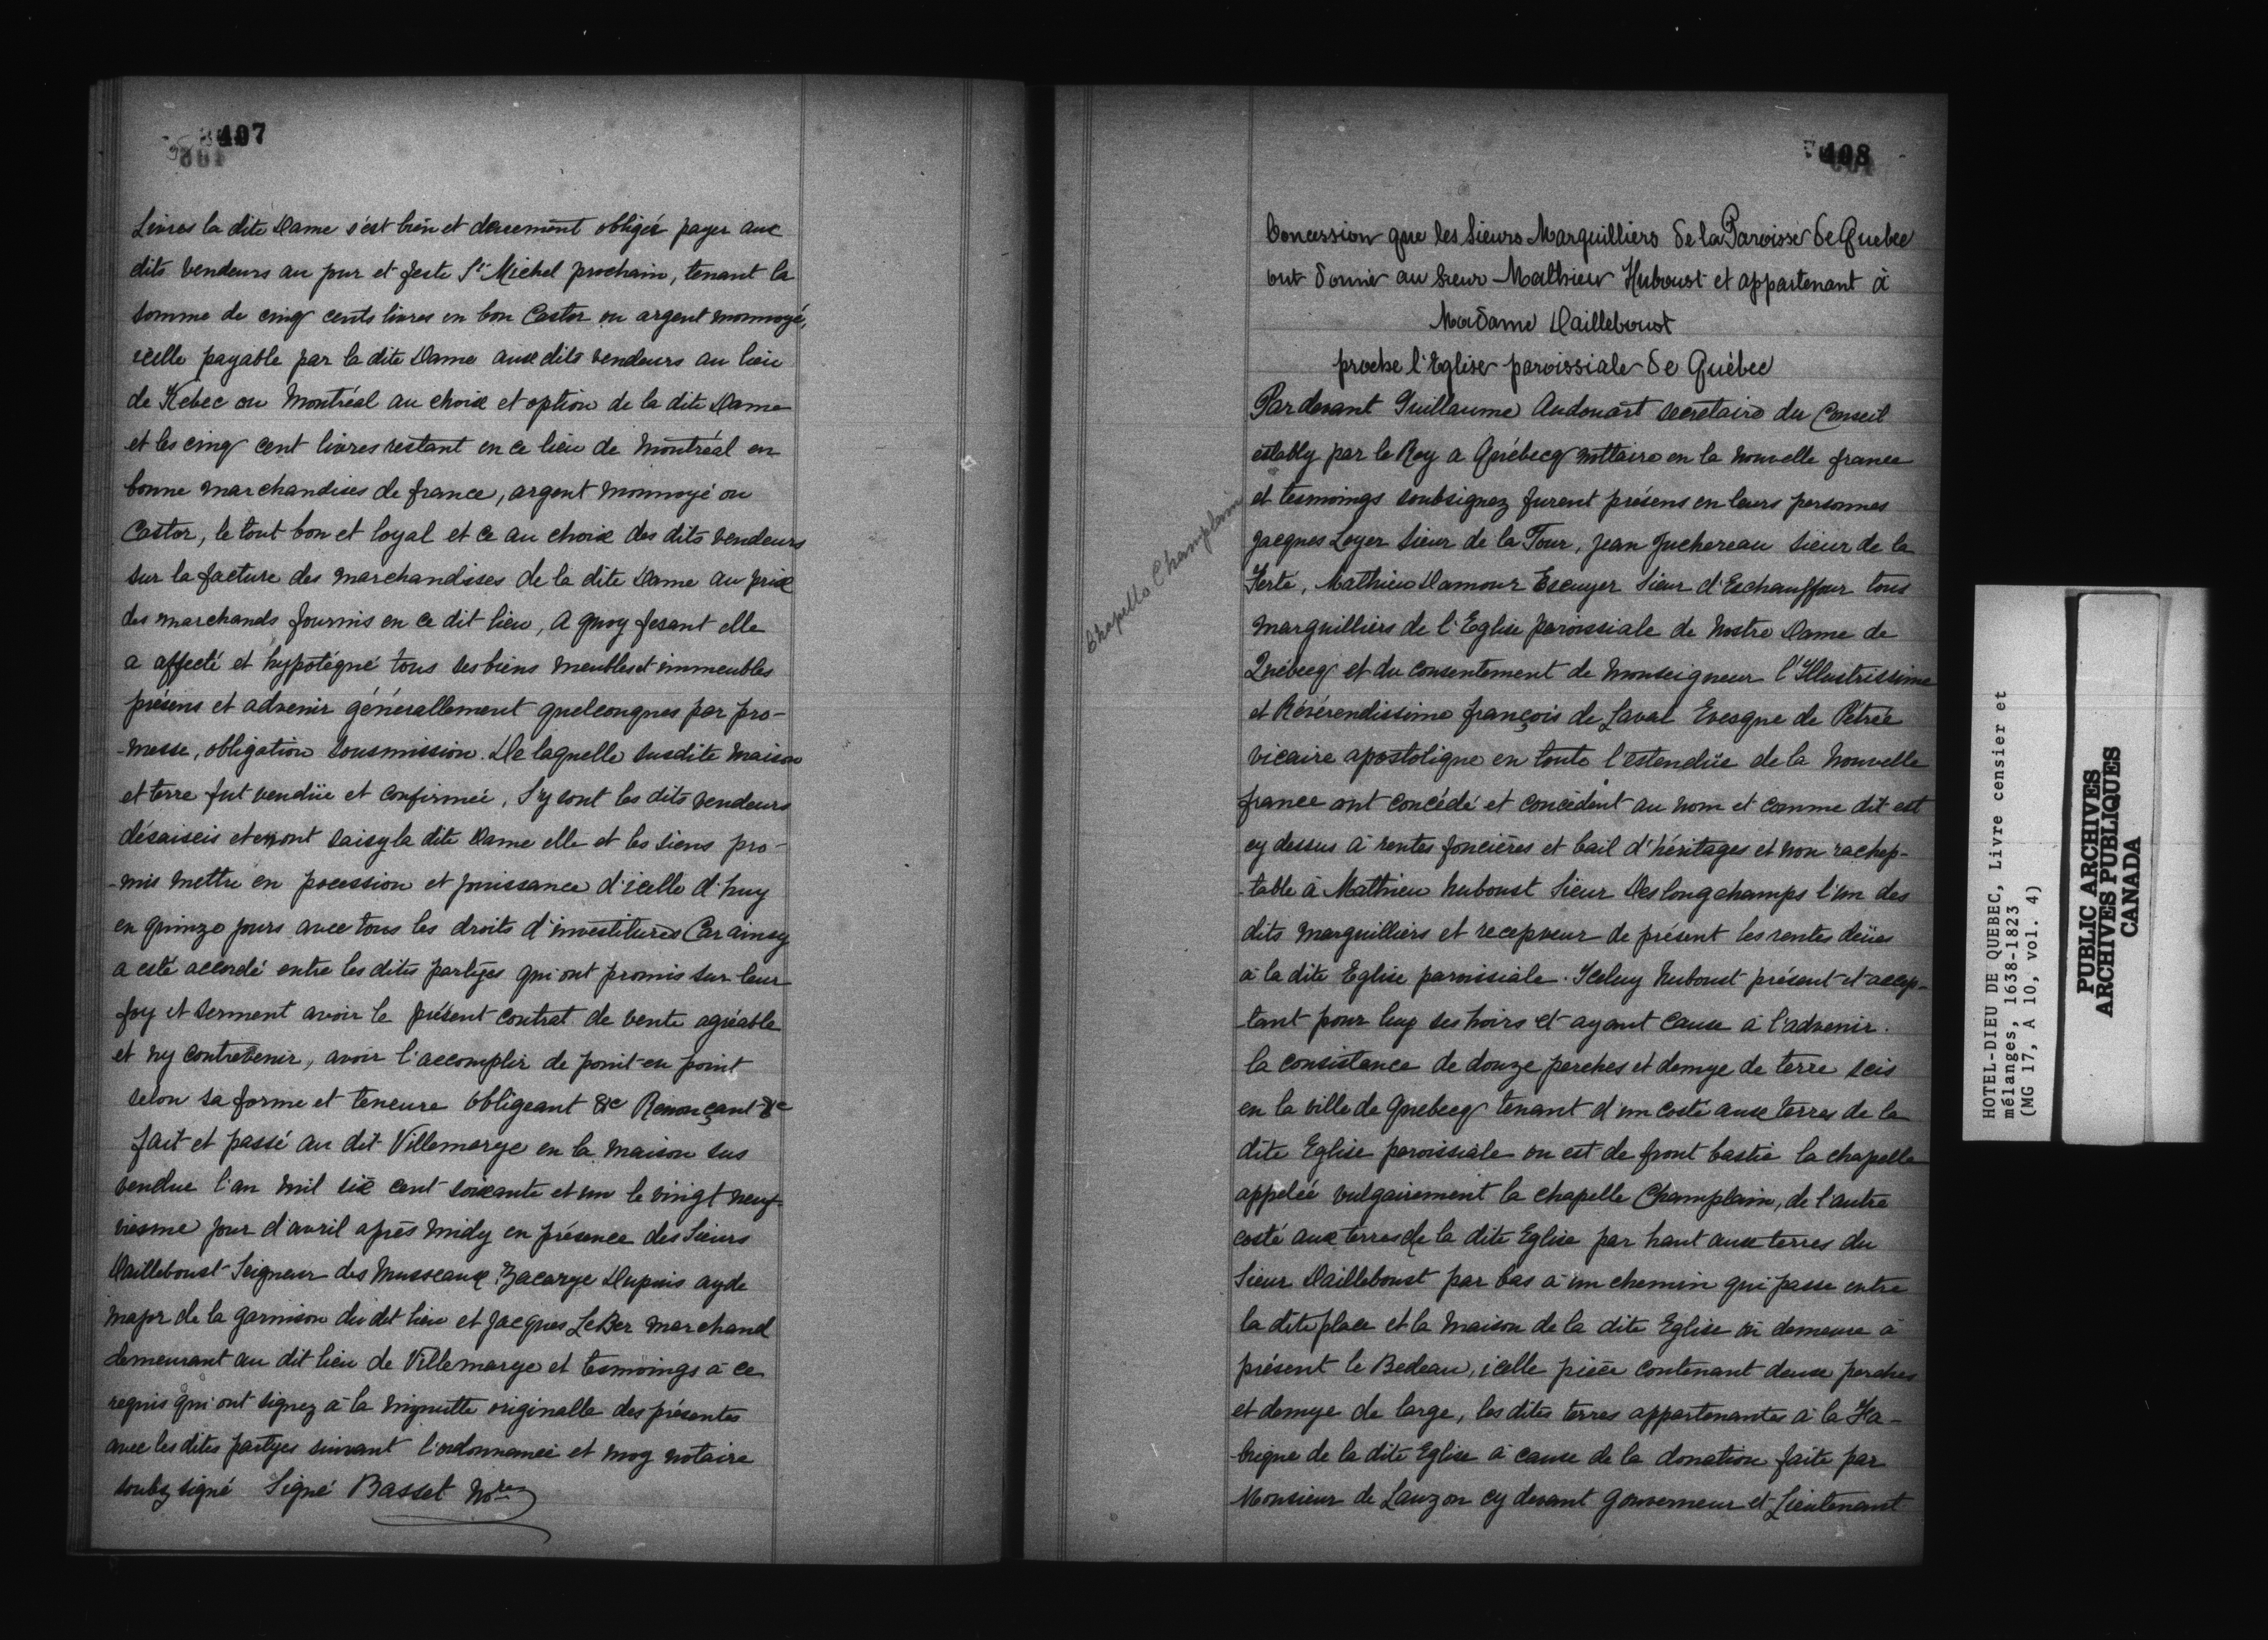 407
Livres la dite Dame s'est bien et deuement obligée payer aux
dits vendeurs au jour et feste St Michel prochain, tenant la
somme de cinq cents livres en bon Castor ou argent monnoyé,
icelle payable par la dite Dame aux dits vendeurs au lieu
de Kebec ou Montréal au choix et option de la dite Dame
et les cinq cent livres restant en ce lieu de Montréal en
bonne marchandises de france, argent monnoyé ou
Castor, le tout bon et loyal et ce au choix des dits vendeurs
sur la facture des marchandises de la dite Dame au prix
des marchands fournis en ce dit lieu, A quoy fesant elle
a affecté et hypotéqué tous ses biens meubles et immeubles
présens et advenir générallement quelconques par pro-
-messe, obligation sousmission. De laquelle susdite maison
et terre fut vendüe et confirmée, S'y sont les dits vendeurs
désaiseis et en ont saisy la dite Dame elle et les siens pro-
-mis mettre en pocession et jouissance d'icelle d'huy
en quinze jours avec tous les droits d'investitures Car ainsy
a esté accordé entre les dites partÿes qui ont promis sur leur
foy et serment avoir le présent contrat de vente agréable
et ny contrevenir, avoir l'accomplir de point en point
selon sa forme et teneure obligeant &c Renonçant &c
fait et passé au dit Villemarye en la maison sus
vendue l'an mil six cent soixante et un le vingt neuf-
viesme jour d'avril après midy en présence des Sieurs
Dailleboust Seigneur des Musseaux, Zacarye Dupuis ayde
major de la garnison du dit lieu et Jacques LeBer marchand
demeurant au dit lieu de Villemarye et tesmoings à ce
requis qui ont signez à la minutte originalle des présentes
avec les dites partyes suivant l'ordonnance et moy notaire
soubz signé Signé Basset Nore
408
Concession que les Sieurs Marguilliers de la Paroisse de Quebec
ont donné au Sieur Mathieu Huboust et appartenant à
Madame Dailleboust
proche l'Eglise paroissiale de Québec
Chapelle Champlain
Par devant Guillaume Audouart secretaire du Conseil
estably par le Roy a Québecq nottaire en la nouvelle france
et tesmoings soubsignez furent présens en leurs personnes
Jacques Loyer Sieur de la Tour, Jean Juchereau sieur de la
Ferté, Mathieu Damour Escuyer Sieur d'Eschauffour tous
marguilliers de l'Eglise paroissiale de Nostre Dame de
Québecq et du consentement de Monseigneur l'Illustrissime
et Révérendissime françois de Laval Evesque de Pétrée
vicaire apostolique en toute l'estendüe de la Nouvelle
france ont concédé et concèdent au nom et comme dit est
cy dessus à rentes foncières et bail d'héritages et non rachep-
-table à Mathieu huboust Sieur Deslongchamps l'un des
dits marguilliers et recepveur de présent les rentes deües
à la dite Eglise paroissiale. Iceluy huboust présent et accep-
tant pour luy ses hoirs et ayant cause à l'advenir.
la consistance de douze perches et demye de terre scis
en la ville de Quebecq tenant d'un costé aux terres de la
dite Eglise paroissiale ou est de front bastie la chapelle
appelée vulgairement la chapelle Champlain, de l'autre
costé aux terres de la dite Eglise par haut aux terres du
Sieur Dailleboust par bas à un chemin qui passe entre
la dite place et la maison de la dite Eglise où demeure à
présent le Bedeau, icelle pièce contenant deux perches
et demye de large, les dites terres appartenantes à la Fa-
-brique de la dite Eglise à cause de la donation faite par
Monsieur de Lauzon cy devant gouverneur et Lieutenant
HOTEL-DIEU DE QUEBEC, Livre censier et
mélanges, 1638-1823
(MG 17, A 10, vol. 4)
PUBLIC ARCHIVES
ARCHIVES PUBLIQUES
CANADA